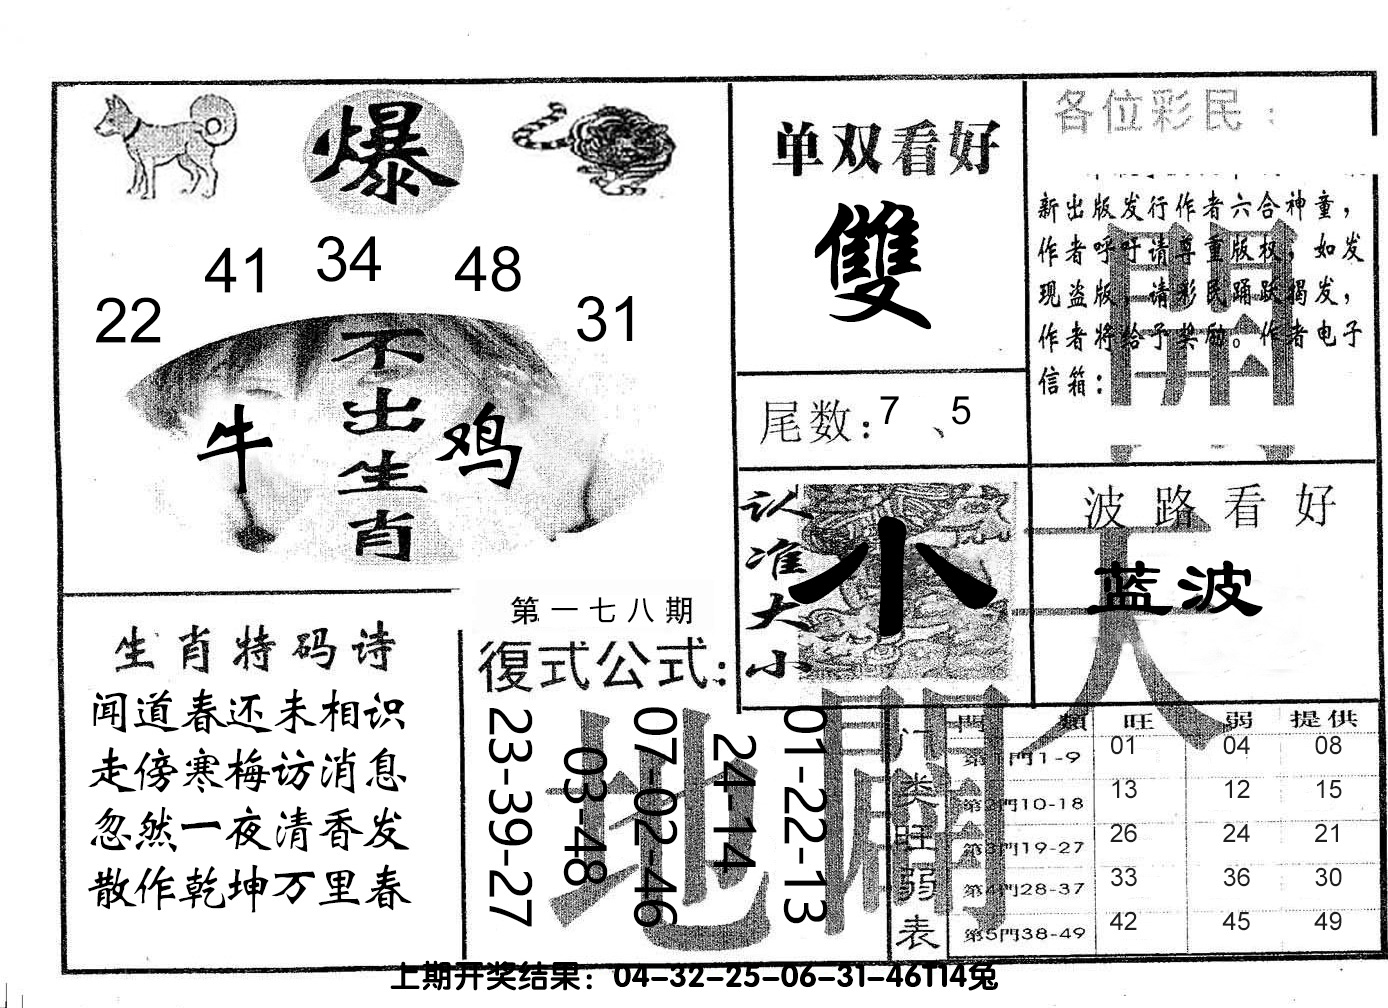 爆
41 34 48
22 31
不出生肖
牛 鸡
单双看好
雙
尾数：7、5
各位彩民：
新出版发行作者六合神童，
作者呼吁请尊重版权，如发
现盗版，请彩民踊跃揭发，
作者将给予奖励。作者电子
信箱：
認准大小
小
波路看好
蓝波
天
開
地
闢
生肖特码诗
闻道春还未相识
走傍寒梅访消息
忽然一夜清香发
散作乾坤万里春
第一七八期
復式公式：
23-39-27
03-48
07-02-46
24-14
01-22-13
门类旺弱表
門類 旺 弱 提供
第1門1-9 01 04 08
第2門10-18 13 12 15
第3門19-27 26 24 21
第4門28-37 33 36 30
第5門38-49 42 45 49
上期开奖结果：04-32-25-06-31-46T14兔